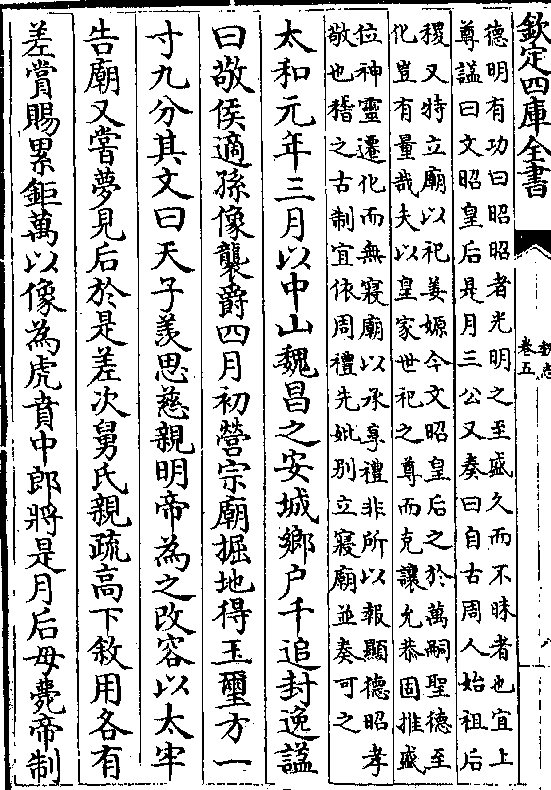 欽定四庫全書
卷五
德明有功曰昭昭者光明之至盛久而不昧者也宜上
尊諡曰文昭皇后是月三公又奏曰自古周人始祖后
稷又特立廟以祀姜嫄今文昭皇后之於萬嗣聖德至
化豈有量哉夫以皇家世祀之尊而克讓允恭固推盛
位神靈遷化而無寢廟以承享禮非所以報顯德昭孝
敬也稽之古制宜依周禮先妣別立寢廟並奏可之
太和元年三月以中山魏昌之安城鄉户千追封逸諡
曰敬侯適孫像襲爵四月初營宗廟掘地得玉璽方一
寸九分其文曰天子羡思慈親明帝為之改容以太牢
告廟又嘗夢見后於是差次舅氏親疏高下敘用各有
差賞賜累鉅萬以像為虎賁中郎將是月后母薨帝制